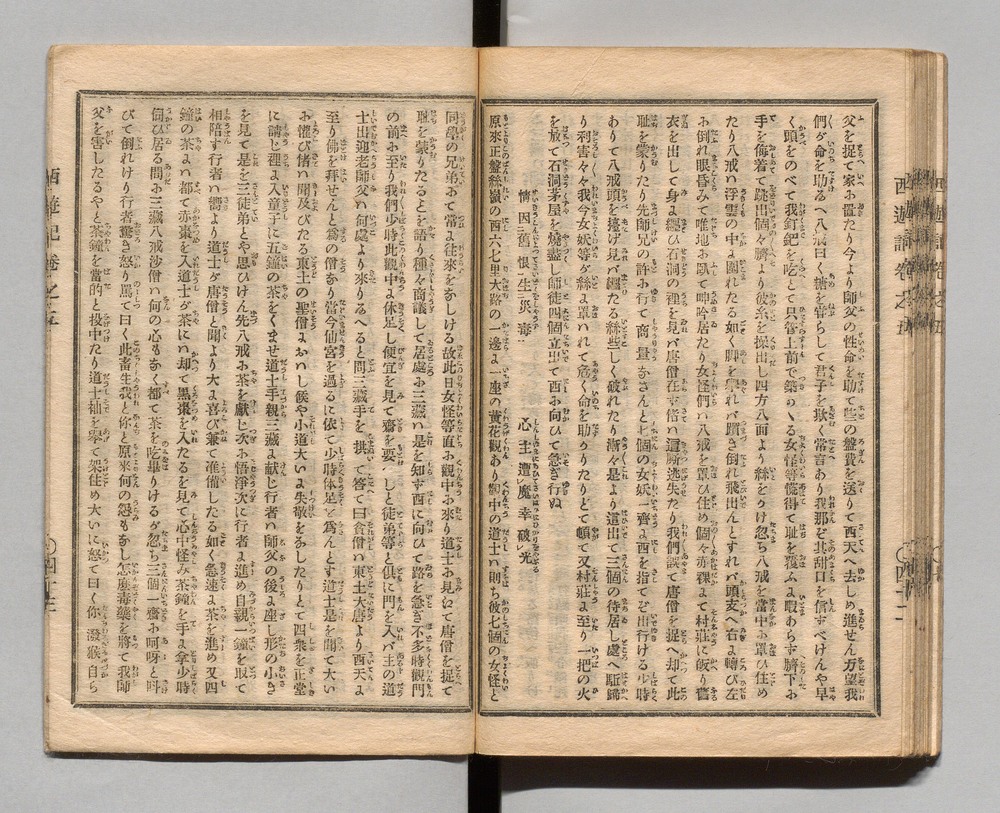 父を捉て家に置たり今より師父の性命を助て些の盤費を送りて西天へ去しめ進せん万望我
們が命を助給へ八戒曰く糖を管らして君子を欺く常言あり我那ぞ其甜口を信すべけんや早
く頭をのべて我釘鈀を吃とて只管上前で築かくる女怪等慌得て耻を覆ふよ暇あらず臍下お
手を侮着て跳出個々臍より彼糸を操出し四方八面より絲をかけ忽ち八戒を當中お罩ひ住め
たり八戒ハ浮雲の中よ圍れたる如く脚を擧れバ躓き倒れ飛出んとすれバ頭支へ右よ轉び左
お倒れ眼昏みて唯地お臥て呻吟居たり女怪們ハ八戒を罩ひ住め個々赤裸よて村莊に皈り舊
衣を出して身よ纏ひ石洞の裡を見バ唐僧在ず偖ハ這厮逃失たり我們誤て唐僧を捉へ却て此
耻を蒙りたり先師兄の許お行て商量なさんと七個の女妖一齊よ西を指てぞ出行ける少時
ありて八戒頭を擡げ見バ纏たる絲些しく破れたり漸々是より這出て三個の待居し處へ駈歸
り利害々々我今女妖等が絲よ罩ハれて危く命を助かりたりとて頓て又村莊よ至り一把の火
を放て石洞茅屋を燒盡し師徒四個立出て西お向ひて急ぎ行ぬ
情因舊恨生災毒 心主遭魔幸破光
原來正盤絲嶺の西六七里大路の一邊よ一座の黄花觀あり觀中の道士ハ則ち彼七個の女怪と
西遊記卷之五
四十二
同學の兄弟おて常よ往來をなしける故此日女怪等直お觀中お來り道士お見えて唐僧を捉て
耻を蒙りたることを語り種々商議して居處お三藏ハ是を知ず西に向ひて路を急ぎ不多時觀門
の前お至り我們少時此觀中よ休足し便宜を見て齋を要べしと徒弟等と俱に門を入バ主の道
士出迎老師父ハ何處より來り給へると問三藏手を拱て答て曰貧僧ハ東土大唐より西天よ
至り佛を拜せんと為の僧なり當今仙宮を過るに依て少時休足と為んとす道士是を聞て大い
お懽び偖ハ聞及びたる東土の聖僧よおハし候や小道大いよ失敬をなしたりとて四衆を正堂
に請じ裡よ入童子に五鐘の茶をくませ道士手親三藏よ献じ行者ハ師父の後よ座し形の小き
を見て是を三徒弟とや思ひけん先八戒お茶を獻じ次お悟淨次に行者よ進め自親一鐘を取て
相陪す行者ハ嚮より道士が唐僧と聞より大よ喜び兼て准備したる如く急速よ茶を進め又四
鐘の茶よハ都て赤棗を入道士が茶にハ却て黒棗を入たるを見て心中怪み茶鐘を手よ拿少時
伺ひ居る間お三藏八戒沙僧ハ何の心もなく都て茶を吃畢りけるが忽ち三個一齋お呵呀と叫
びて倒れけり行者驚き怒り罵て曰く此畜生我と你と原來何の怨もなし怎麼毒藥を將て我師
父を害したるやと茶鐘を當的と投中たり道士袖を擧て架住め大いに怒て曰く你潑猴自ら
西遊記卷之五
四十三